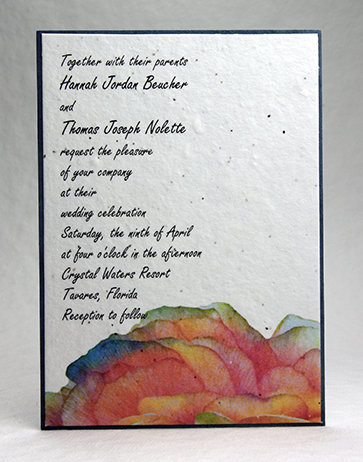 Together with their parents
Hannah Jordan Beucher
and
Thomas Joseph Nolette
request the pleasure
of your company
at their
wedding celebration
Saturday, the ninth of April
at four o'clock in the afternoon
Crystal Waters Resort
Tavares, Florida
Reception to follow